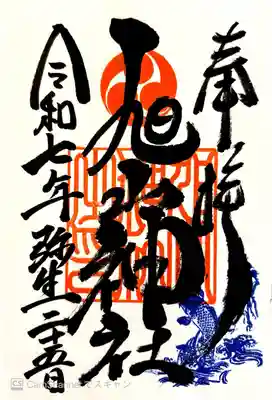 奉拝
旭山神社
令和七年弥生二十五日
CS CamScannerでスキャン